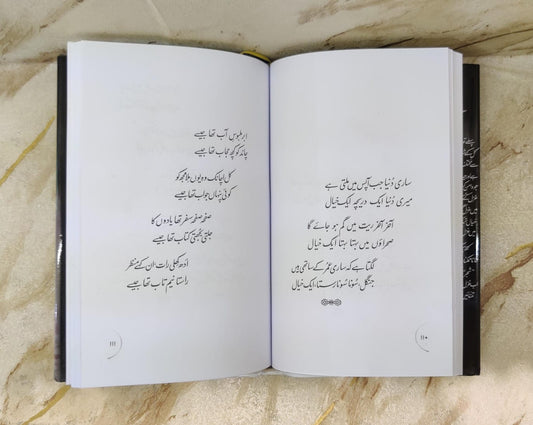 ساری دُنیا جب آپس میں ملتی ہے
میری دُنیا ایک دریچہ ایک خیال
آخر آخر ریت میں گم ہو جائے گا
صحراؤں میں بہتا بہتا ایک خیال
لگتا ہے کہ ساری عمر کے ساتھی ہیں
جنگل، سُونا سُونا رستا، ایک خیال
۱۱۰
ابر ملبوسِ آب تھا جیسے
چاند کو کچھ حجاب تھا جیسے
کل اچانک وہ یوں ملا مجھ کو
کوئی پنہاں جواب تھا جیسے
صفحہ صفحہ سفر تھا یادوں کا
جلتی بجھتی کتاب تھا جیسے
ادھ کھلی رات، ان کہے منظر
راستا نیم تاب تھا جیسے
۱۱۱